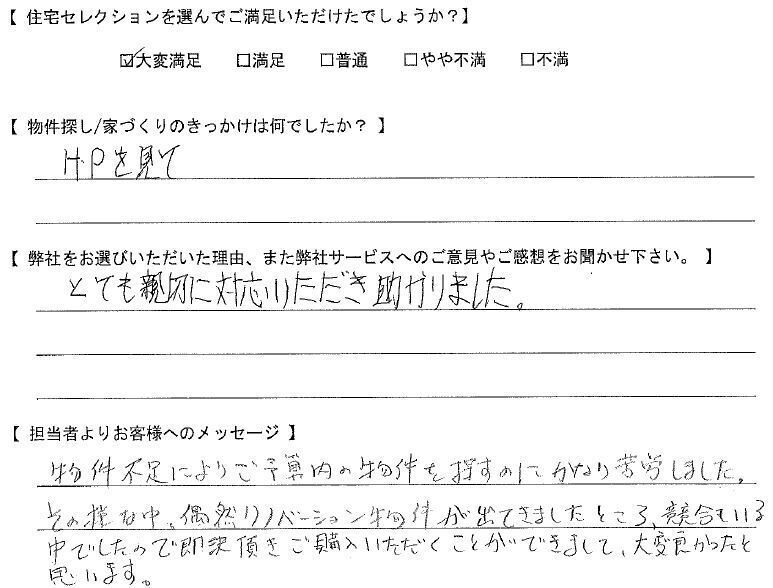 【 住宅セレクションを選んでご満足いただけたでしょうか？】
☑大変満足 □満足 □普通 □やや不満 □不満
【 物件探し/家づくりのきっかけは何でしたか？ 】
H.Pを見て
【 弊社をお選びいただいた理由、また弊社サービスへのご意見やご感想をお聞かせ下さい。 】
とても親切に対応いただき助かりました。
【 担当者よりお客様へのメッセージ 】
物件不足によりご予算内の物件を探すのにかなり苦労しました。
その様な中、偶然リノベーション物件が出てきましたところ、競合もいる
中でしたので即決頂きご購入いただくことができまして、大変良かったと
思います。